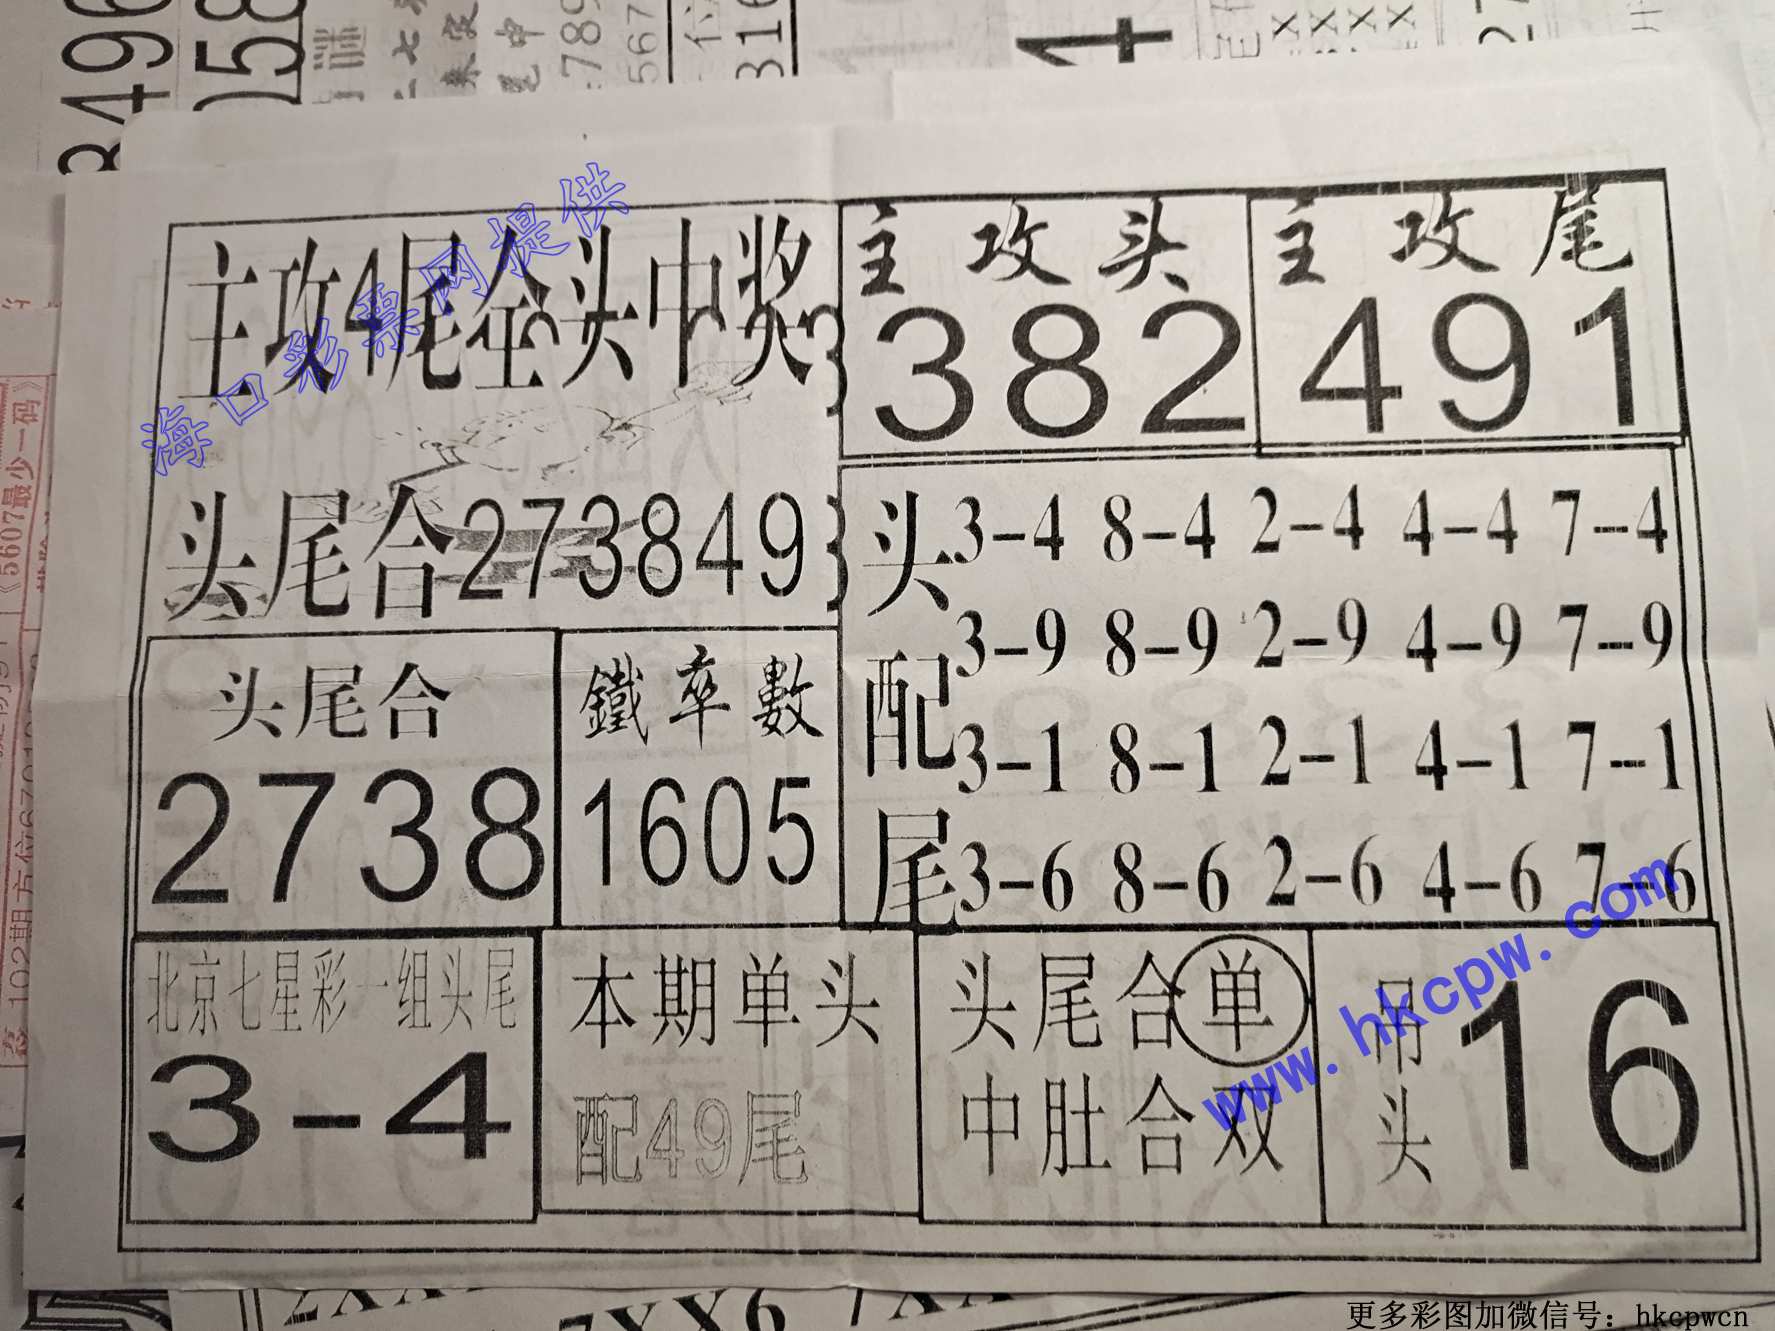 主攻4尾全头中奖
头尾合273849
主攻头
382
主攻尾
491
头配尾
3-4 8-4 2-4 4-4 7-4
3-9 8-9 2-9 4-9 7-9
3-1 8-1 2-1 4-1 7-1
3-6 8-6 2-6 4-6 7-6
头尾合
2738
鐵率數
1605
北京七星彩一组头尾
3-4
本期单头
配49尾
头尾合单
中肚合双
吊头
16
海口彩票网提供
www.hkcpw.com
更多彩图加微信号：hkcpwcn